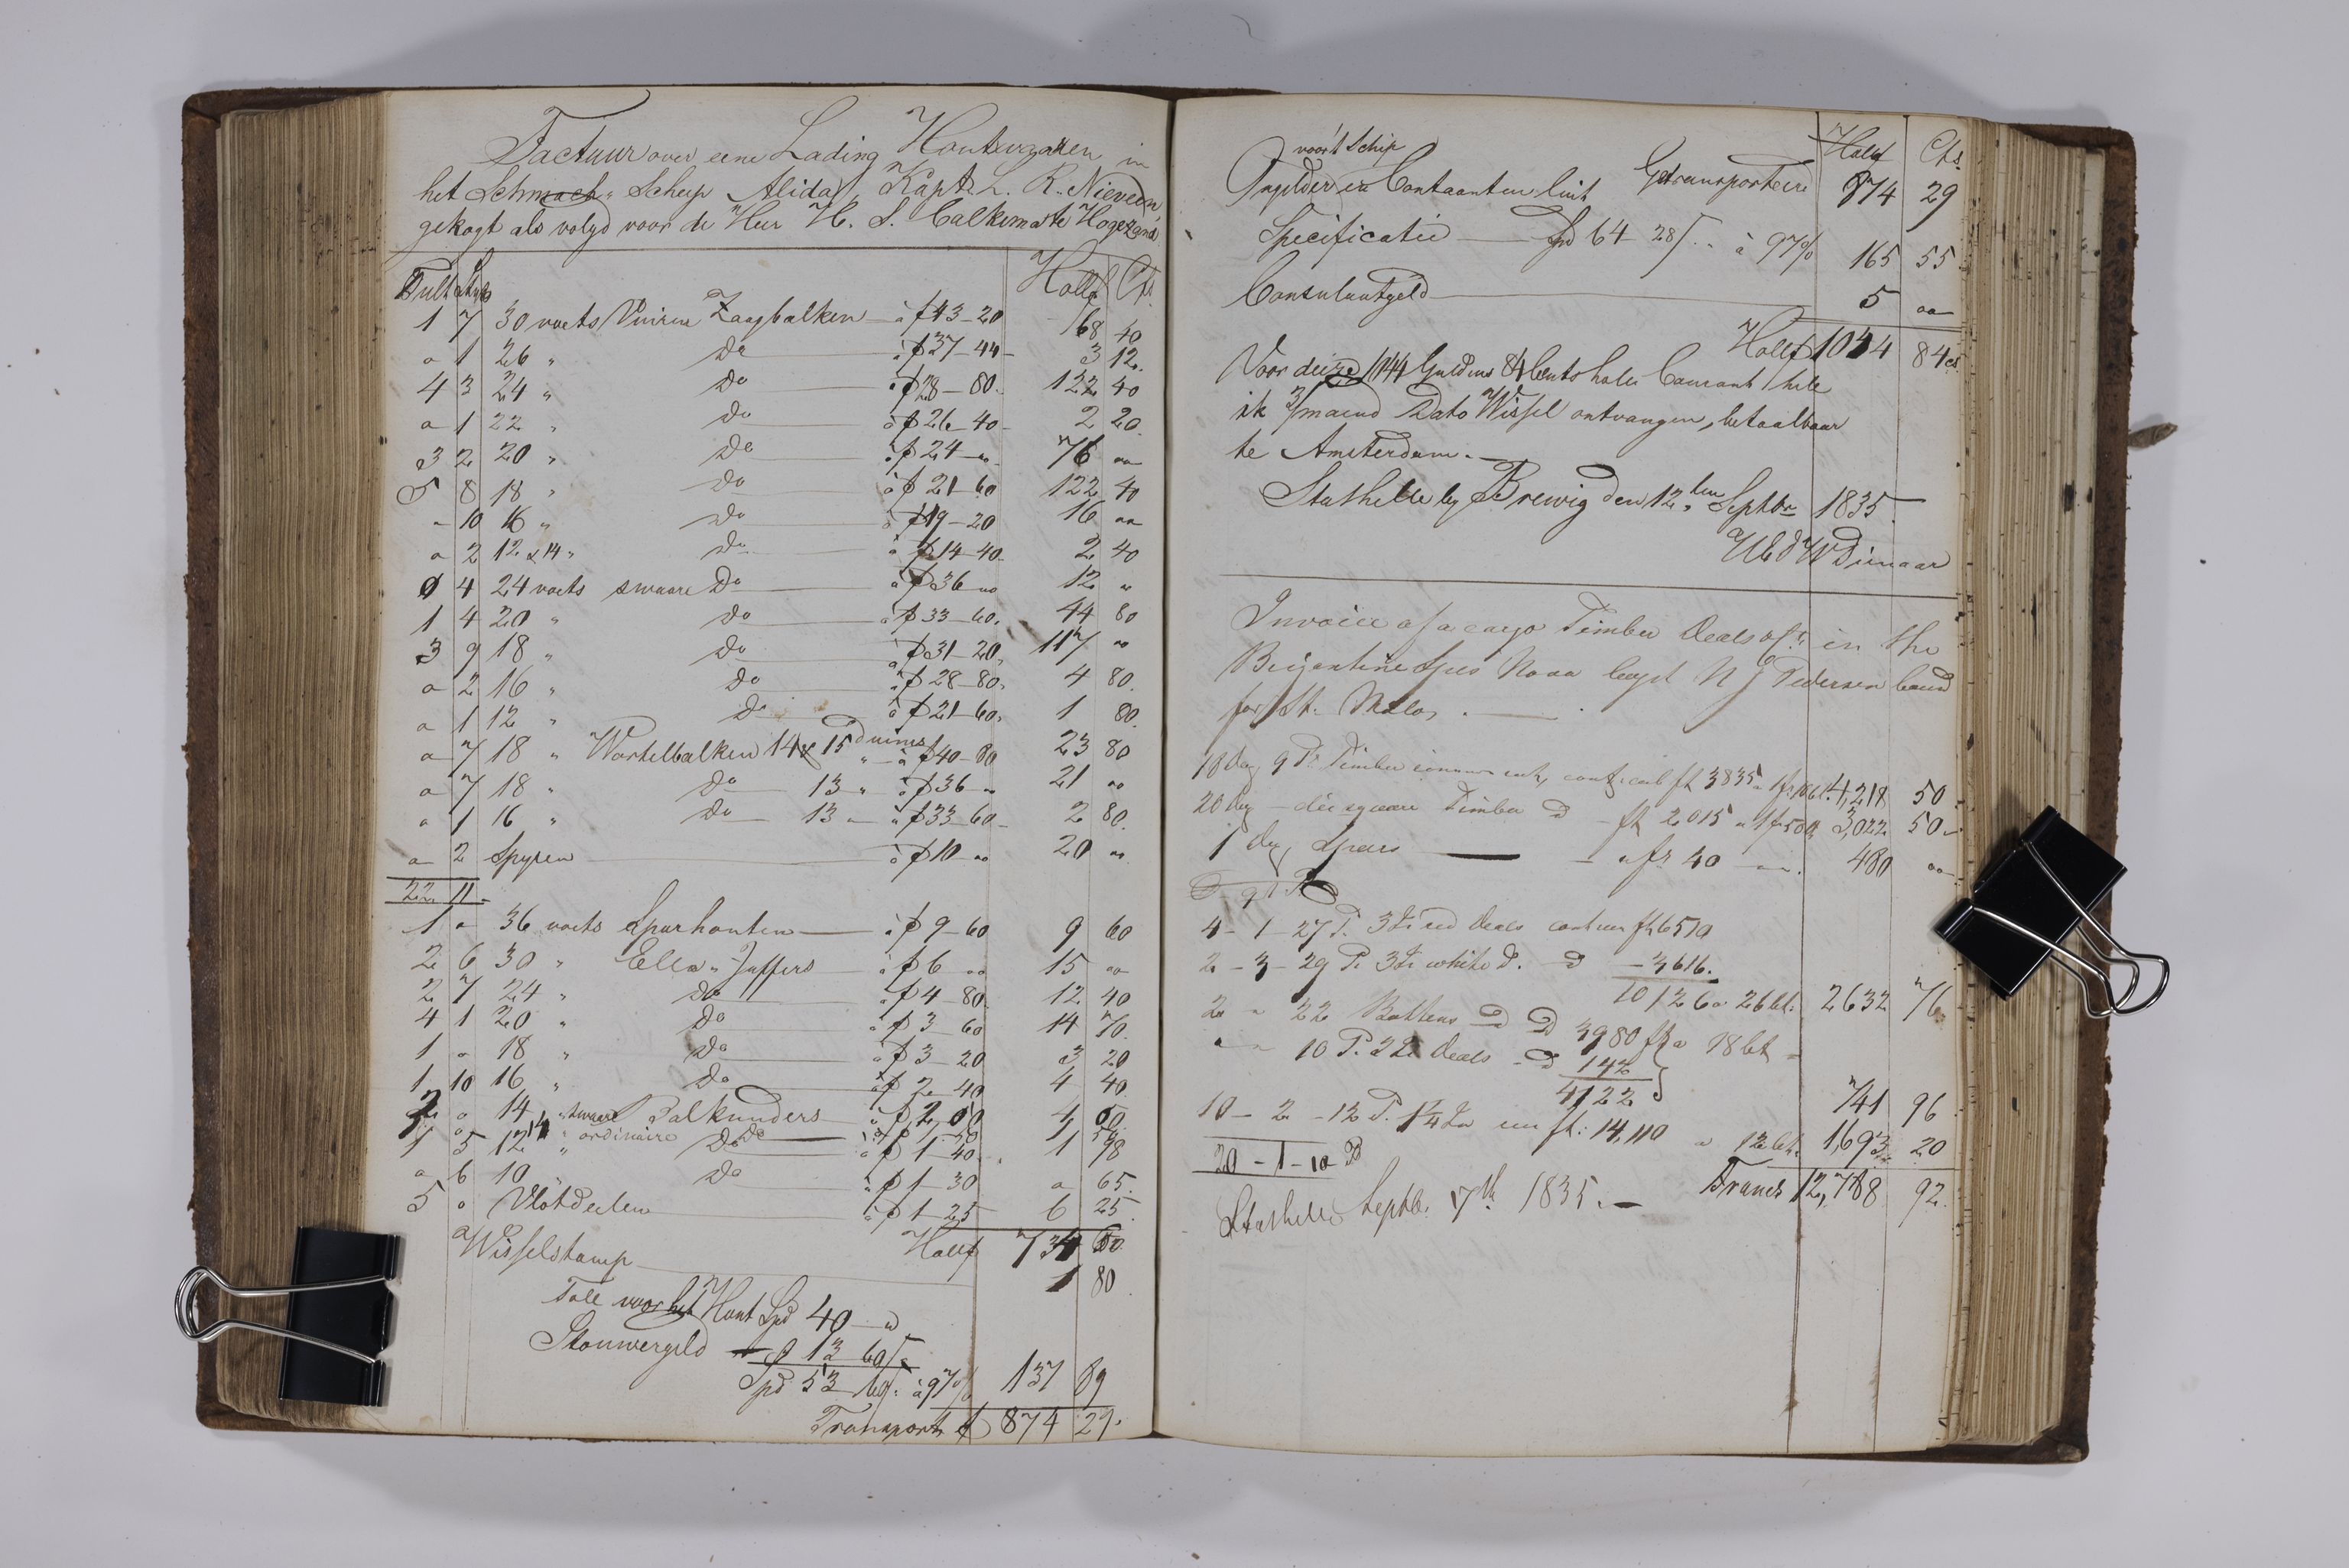 Factuur over eene Lading Houtwaaren in
het Schmack Scheep Alida, Kapt. L. R. Nieveen
gekogt als volgd voor de Heer H. S. Calkema te Hogezand
Tult Stk Hollf Cts
1 7 30 voets Vuiren Zaagbalken à f 43-20 68 40
" 1 26 " Do à f 37-44 3 12
4 3 24 " Do à f 28-80 122 40
" 1 22 " Do à f 26-40 2 20
3 2 20 " Do à f 24 " 76 "
5 8 18 " Do à f 21-60 122 40
" 10 16 " Do à f 19-20 16 "
" 2 12 & 14 " Do à f 14-40 2 40
0 4 24 voets swaare Do à f 36 " 12 "
1 4 20 " Do à f 33-60 44 80
3 9 18 " Do à f 31-20 117 "
" 2 16 " Do à f 28-80 4 80
" 1 12 " Do à f 21-60 1 80
" 7 18 " Wortelbalken 14 & 15 Duims à f 40-80 23 80
" 7 18 " Do 13 " à f 36 " 21 "
" 1 16 " Do 13 " à f 33-60 2 80
" 2 Spyren à f 10 " 20 "
22 11
1 " 36 voets Sparhouten à f 9-60 9 60
2 6 30 " Ellen Juffers à f 6 " 15 "
2 7 24 " Do à f 4-80 12 40
4 1 20 " Do à f 3-60 14 70
1 " 18 " Do à f 3-20 3 20
1 10 16 " Do à f 2-40 4 40
2 " 14 " swaare Balkunders à f 2 00 4 00
ordinaire Do
1 5 12 " Do à f 1-40 1 98
" 6 10 Do à f 1-30 " 65
5 " Vlotdeelen à f 1-25 6 25
Hollf 734 60
Wisselstamp 1 80
Toll voor het Hout Spd 40 "
Stouwergeld 13 60/"
Spd 53 60/" à 97% 137 89
Transport f 874 29
voor't Schip Hollf Cts
Ongelder en Contaanten luit Getransporteerd 874 29
Specificatie Spd 64 28/" à 97% 165 55
Consulautgeld 5 "
Hollf 1044 84 cs
Voor deize 1044 Guldens 84 Cents holl. Courant hebe
ik 3/maand Dato Wissel ontvangen, betaalbaar
te Amsterdam.
Stathelle by Brewig den 12ten Septbr 1835.
UEd W Dienaar
Invoice of a cargo Timber Deals &c. in the
Brigantine Spes Nova Capt N J Pedersen bound
for St. Malo.
18 dog 9 Ps Timber cont cub ft 3835 4,218 50
20 dog square Timber D ft 2015 a 1 fr 50 3,022 50
1 dog Spars a fr 40 " 480 "
4 - 1 - 27 P. 3 In red deals cont run ft 6510
2 - 3 - 29 P. 3 In white D. D - 3616.
10126 a 26 Ct: 2632 76
2 " 22 Battens D D 3980 ft a 18 Ct
" " 10 P. 2 In deals D 142
4122 741 96
10 - 2 - 12 P. 1 1/4 In run ft: 14,110 a 12 Ct. 1,693 20
20 - 1 - 10 P Francs 12,788 92
Stathelle Septbr. 17th 1835.